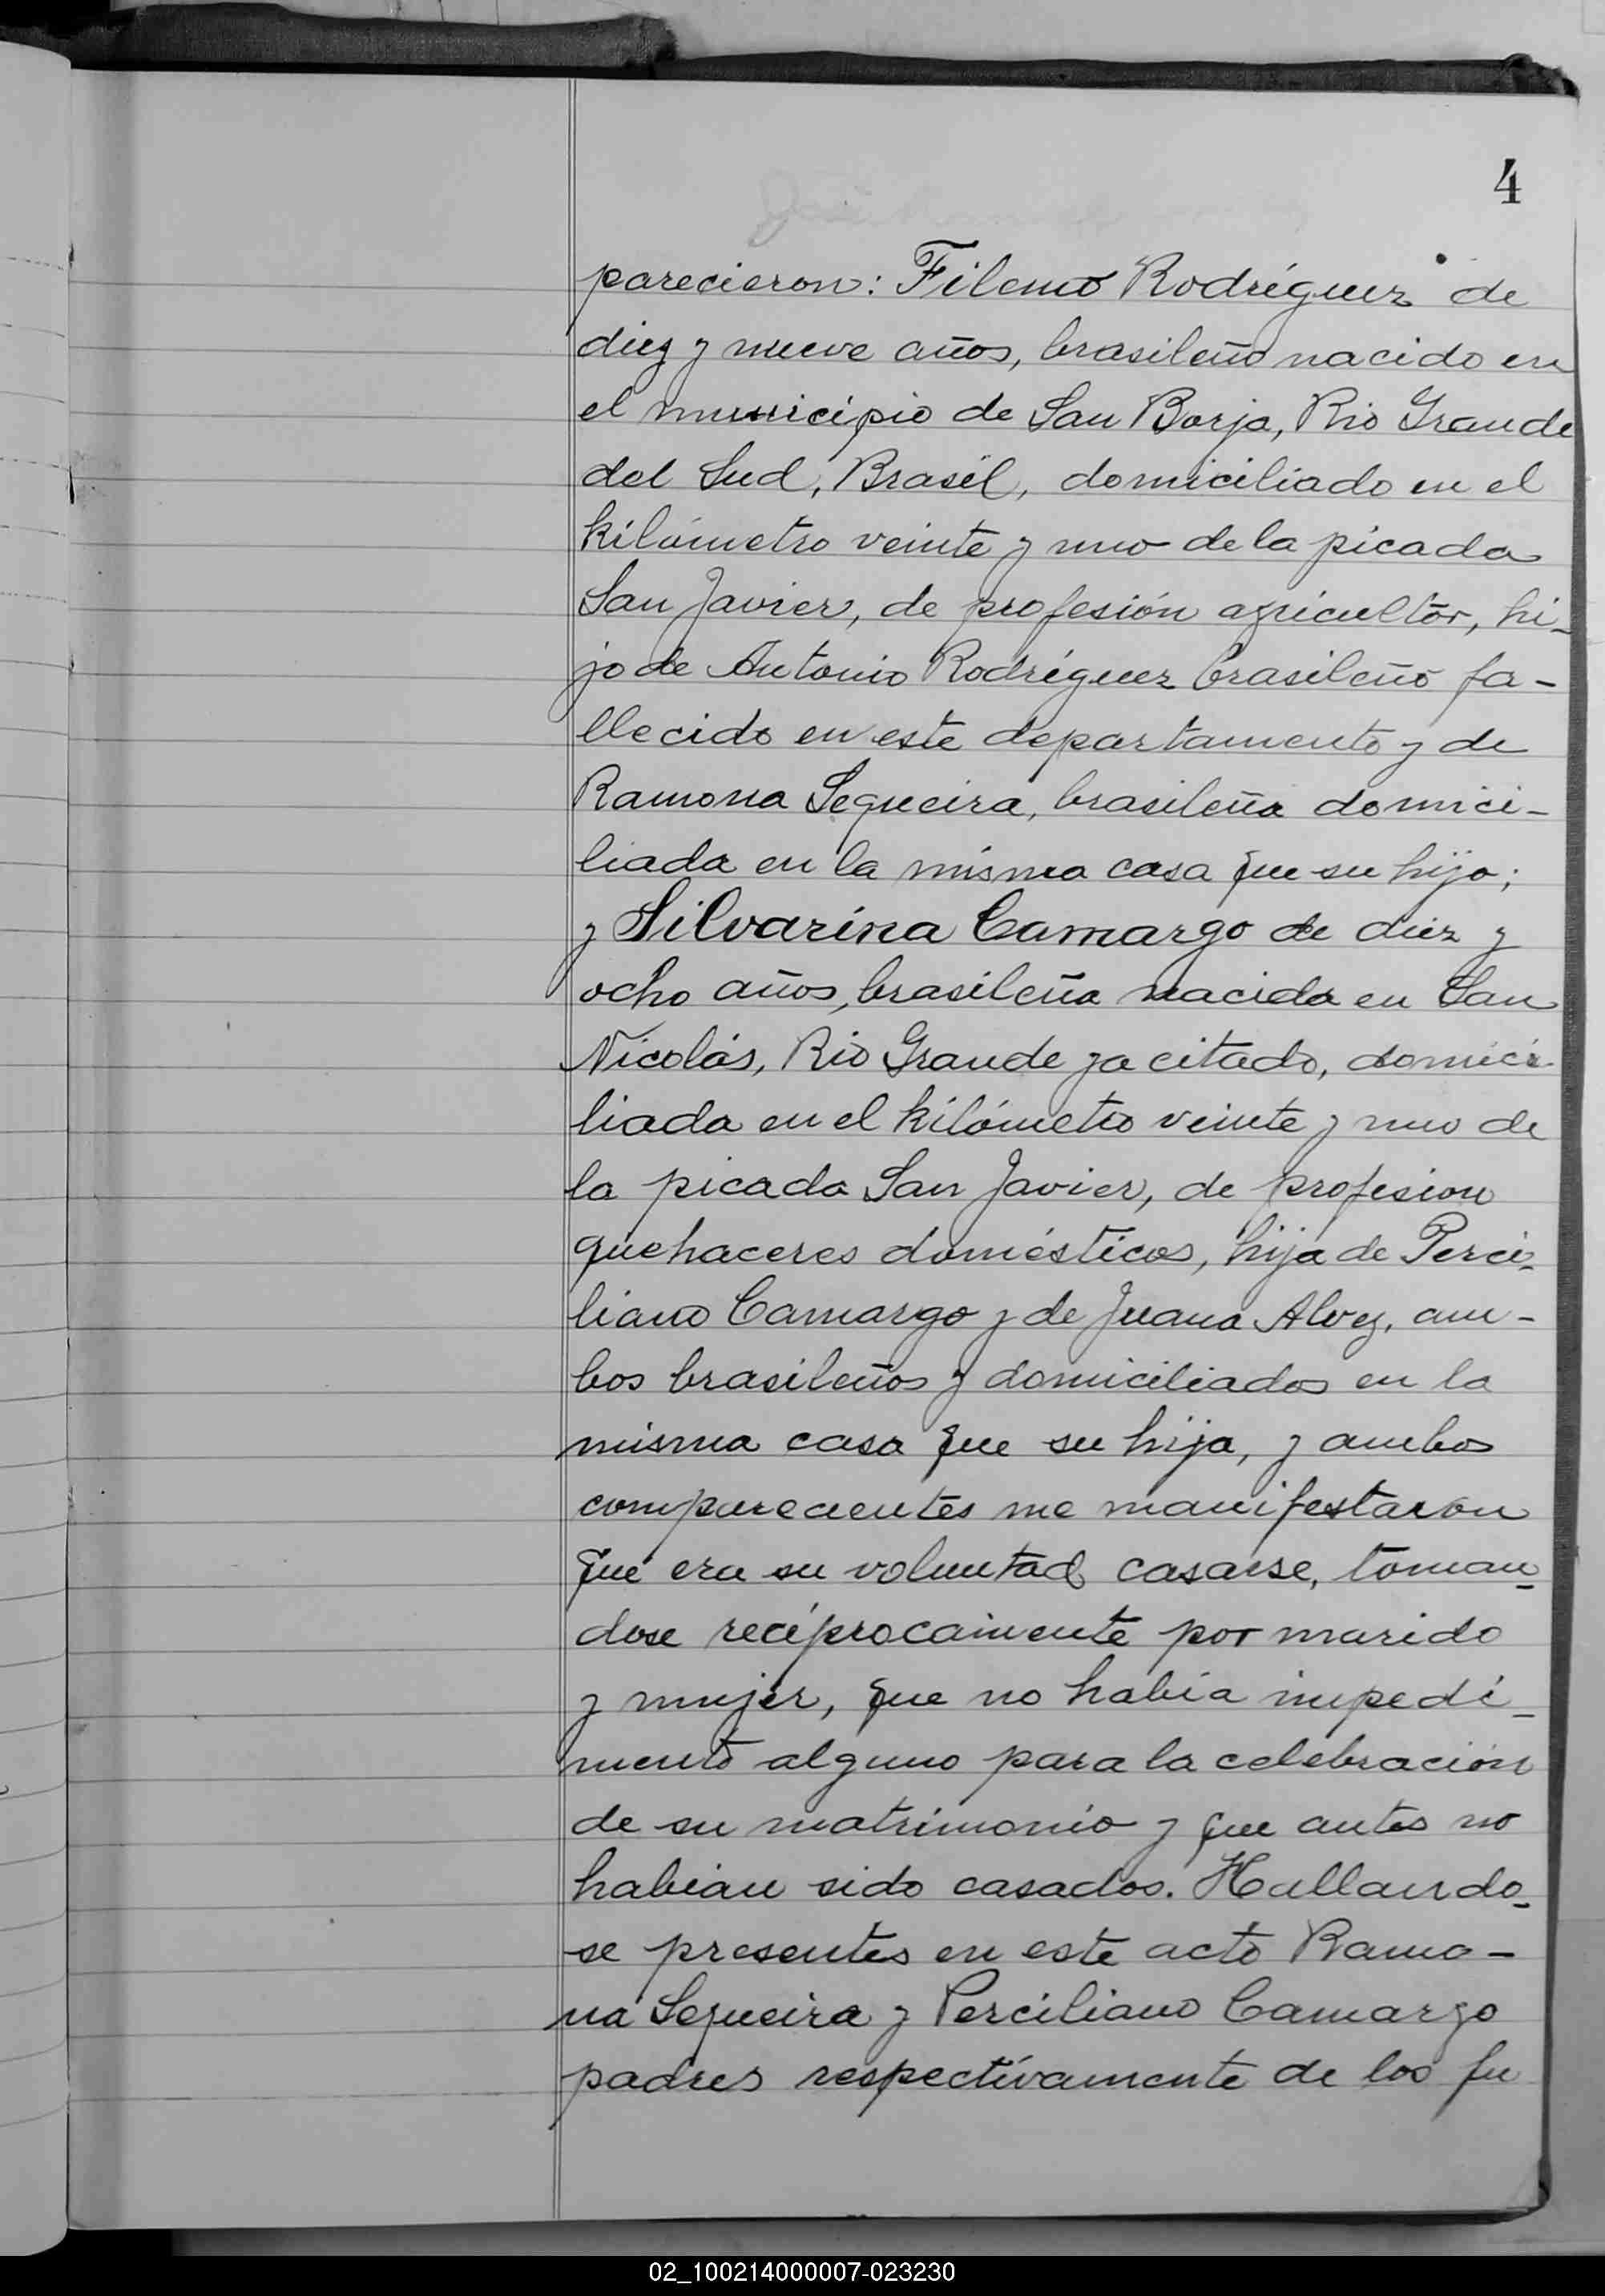 4
parecieron: Filemo Rodríguez de
diez y nueve años, brasileño nacido en
el municipio de San Borja, Rio Grande
del Sud, Brasil, domiciliado en el
kilómetro veinte y uno de la picada
San Javier, de profesión agricultor, hi-
jo de Antonio Rodríguez brasileño fa-
llecido en este departamento y de
Ramona Sequeira, brasileña domici-
liada en la misma casa que su hijo;
y Silvarina Camargo de diez y
ocho años, brasileña nacida en San
Nicolás, Rio Grande ya citado, domici-
liada en el kilómetro veinte y uno de
la picada San Javier, de profesion
quehaceres domésticos, hija de Perci-
liano Camargo y de Juana Alvez, am-
bos brasileños y domiciliados en la
misma casa que su hija, y ambos
comparecientes me manifestaron
que era su voluntad casarse, toman-
dose recíprocamente por marido
y mujer, que no había impedi-
mento alguno para la celebración
de su matrimonio y que antes no
habian sido casados. Hallando-
se presentes en este acto Ramo-
na Sequeira y Perciliano Camargo
padres respectívamente de los fu
02_100214000007-023230